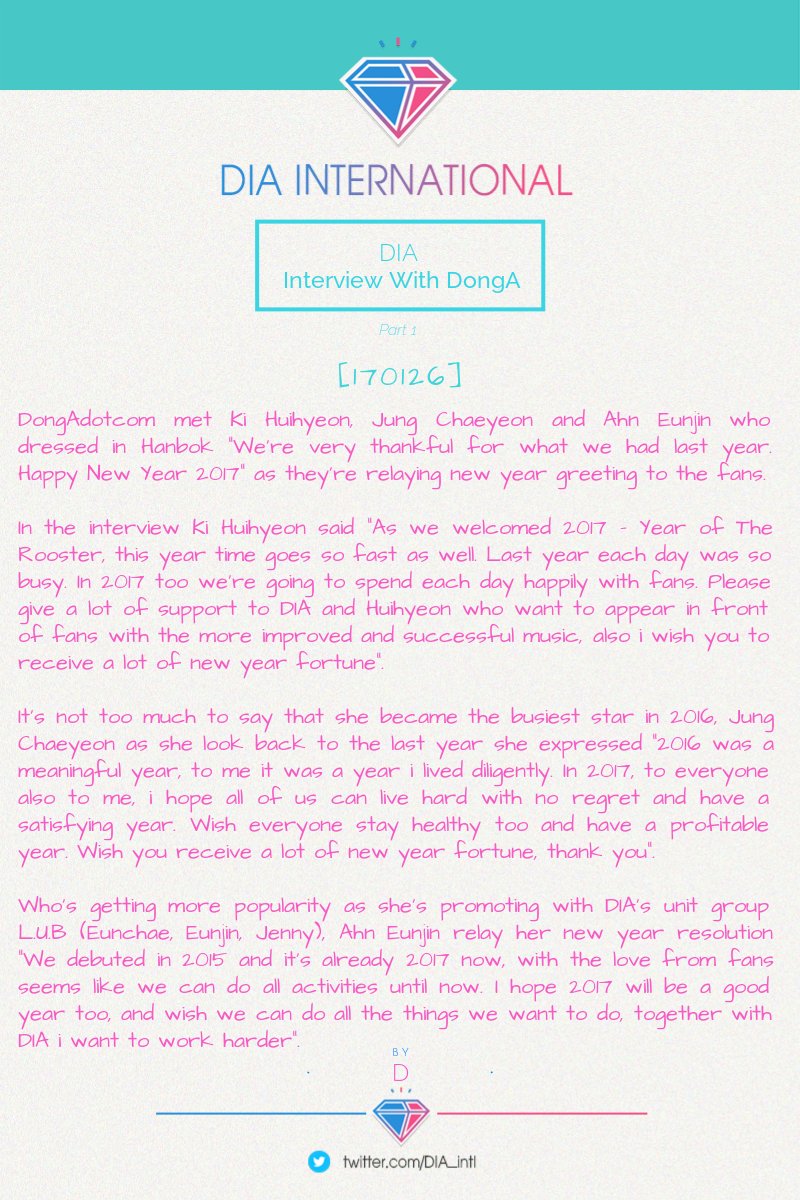 DIA INTERNATIONAL
DIA
Interview With DongA
Part 1
[170126]
DongAdotcom met Ki Huihyeon, Jung Chaeyeon and Ahn Eunjin who
dressed in Hanbok "We're very thankful for what we had last year.
Happy New Year 2017" as they're relaying new year greeting to the fans.
In the interview Ki Huihyeon said "As we welcomed 2017 - Year of The
Rooster, this year time goes so fast as well. Last year each day was so
busy. In 2017 too we're going to spend each day happily with fans. Please
give a lot of support to DIA and Huihyeon who want to appear in front
of fans with the more improved and successful music, also i wish you to
receive a lot of new year fortune".
It's not too much to say that she became the busiest star in 2016, Jung
Chaeyeon as she look back to the last year she expressed "2016 was a
meaningful year, to me it was a year i lived diligently. In 2017, to everyone
also to me, i hope all of us can live hard with no regret and have a
satisfying year. Wish everyone stay healthy too and have a profitable
year. Wish you receive a lot of new year fortune, thank you".
Who's getting more popularity as she's promoting with DIA's unit group
L.U.B (Eunchae, Eunjin, Jenny), Ahn Eunjin relay her new year resolution
"We debuted in 2015 and it's already 2017 now, with the love from fans
seems like we can do all activities until now. I hope 2017 will be a good
year too, and wish we can do all the things we want to do, together with
DIA i want to work harder".
BY
D
twitter.com/DIA_intl